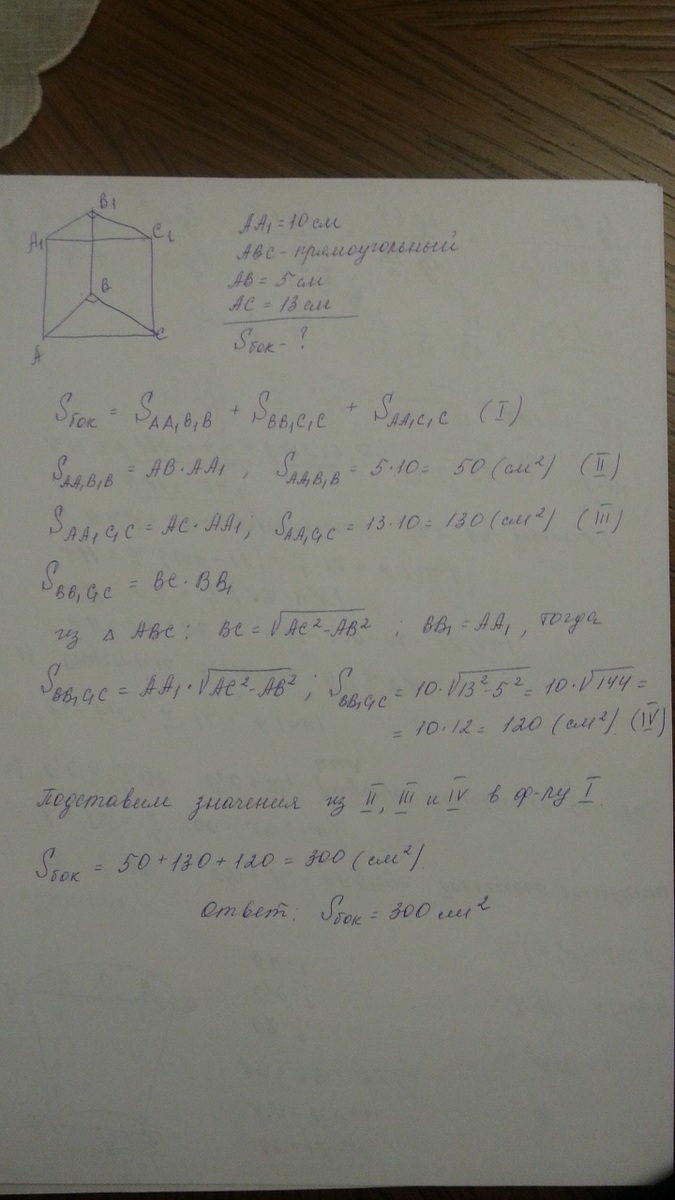 B1
A1
C1
B
A
C
AA₁ = 10 см
ABC - прямоугольный
AB = 5 см
AC = 13 см
Sбок - ?
Sбок = S_AA₁B₁B + S_BB₁C₁C + S_AA₁C₁C (I)
S_AA₁B₁B = AB·AA₁, S_AA₁B₁B = 5·10 = 50 (см²) (II)
S_AA₁C₁C = AC·AA₁; S_AA₁C₁C = 13·10 = 130 (см²) (III)
S_BB₁C₁C = BC·BB₁
из △ ABC: BC = √(AC²-AB²) ; BB₁ = AA₁, тогда
S_BB₁C₁C = AA₁·√(AC²-AB²); S_BB₁C₁C = 10·√(13²-5²) = 10·√144 =
= 10·12 = 120 (см²). (IV)
Подставим значения из II, III и IV в ф-лу I.
Sбок = 50+130+120 = 300 (см²).
Ответ: Sбок = 300 см²